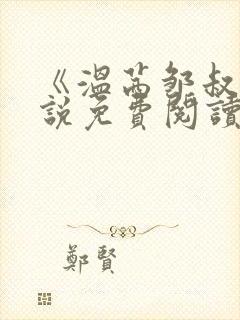 《溫茜邹叔
說免費閱讀
鄭賢